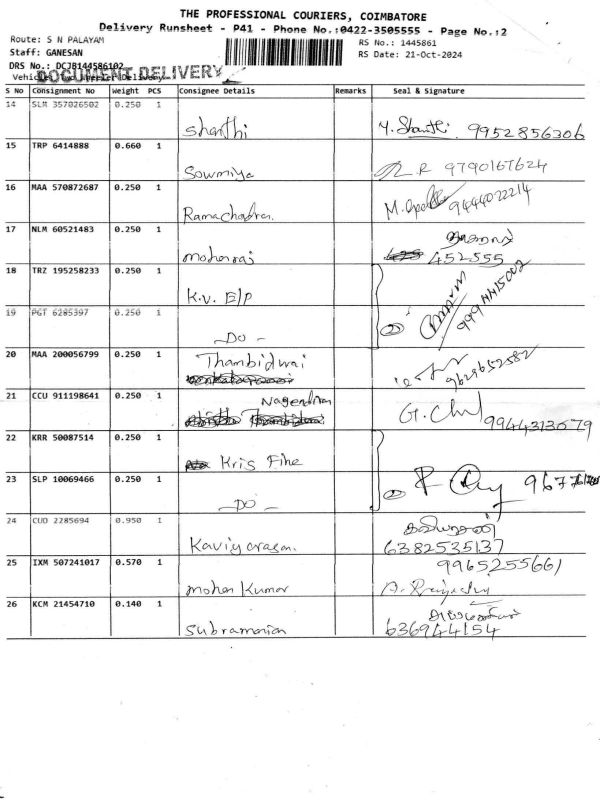 THE PROFESSIONAL COURIERS, COIMBATORE
Delivery Runsheet - P41 - Phone No.:0422-3505555 - Page No.:2
Route: S N PALAYAM
RS No.: 1445861
Staff: GANESAN
RS Date: 21-Oct-2024
DRS No.: DCJB144586102
DOCUMENT DELIVERY
S No Consignment No Weight PCS Consignee Details Remarks Seal & Signature
14 SLM 357026502 0.250 1
Shanthi Y. Shanthi. 9952856306
15 TRP 6414888 0.660 1
Sowmiya R 9790167624
16 MAA 570872687 0.250 1
Ramachadran. 9444022214
17 NLM 60521483 0.250 1
mohanraj 452555
18 TRZ 195258233 0.250 1
K.V. E/P
19 PGT 6285397 0.250 1
- Do - 2
20 MAA 200056799 0.250 1
Thambidurai 9629652582
21 CCU 911198641 0.250 1
Nagendran
22 KRR 50087514 0.250 1
Kris Fine
23 SLP 10069466 0.250 1
- Do - 2
24 CUD 2285694 0.950 1
Kaviyarasan. 6382535137
25 IXM 507241017 0.570 1
9965255661
mohan Kumar
26 KCM 21454710 0.140 1
Subramanian 636944154